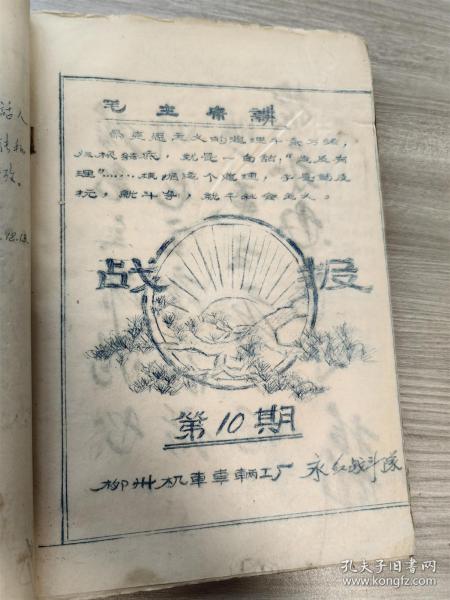 话人
改。
毛主席讲
马克思主义的道理千条万绪,
归根结底，就是一句話，“造反有
理”……根据这个道理，于是就反
抗，就斗争，就干社会主义。
战报
第10期
柳州机車車輛工厂 永红战斗隊
孔夫子旧书网
www.kongfz.com